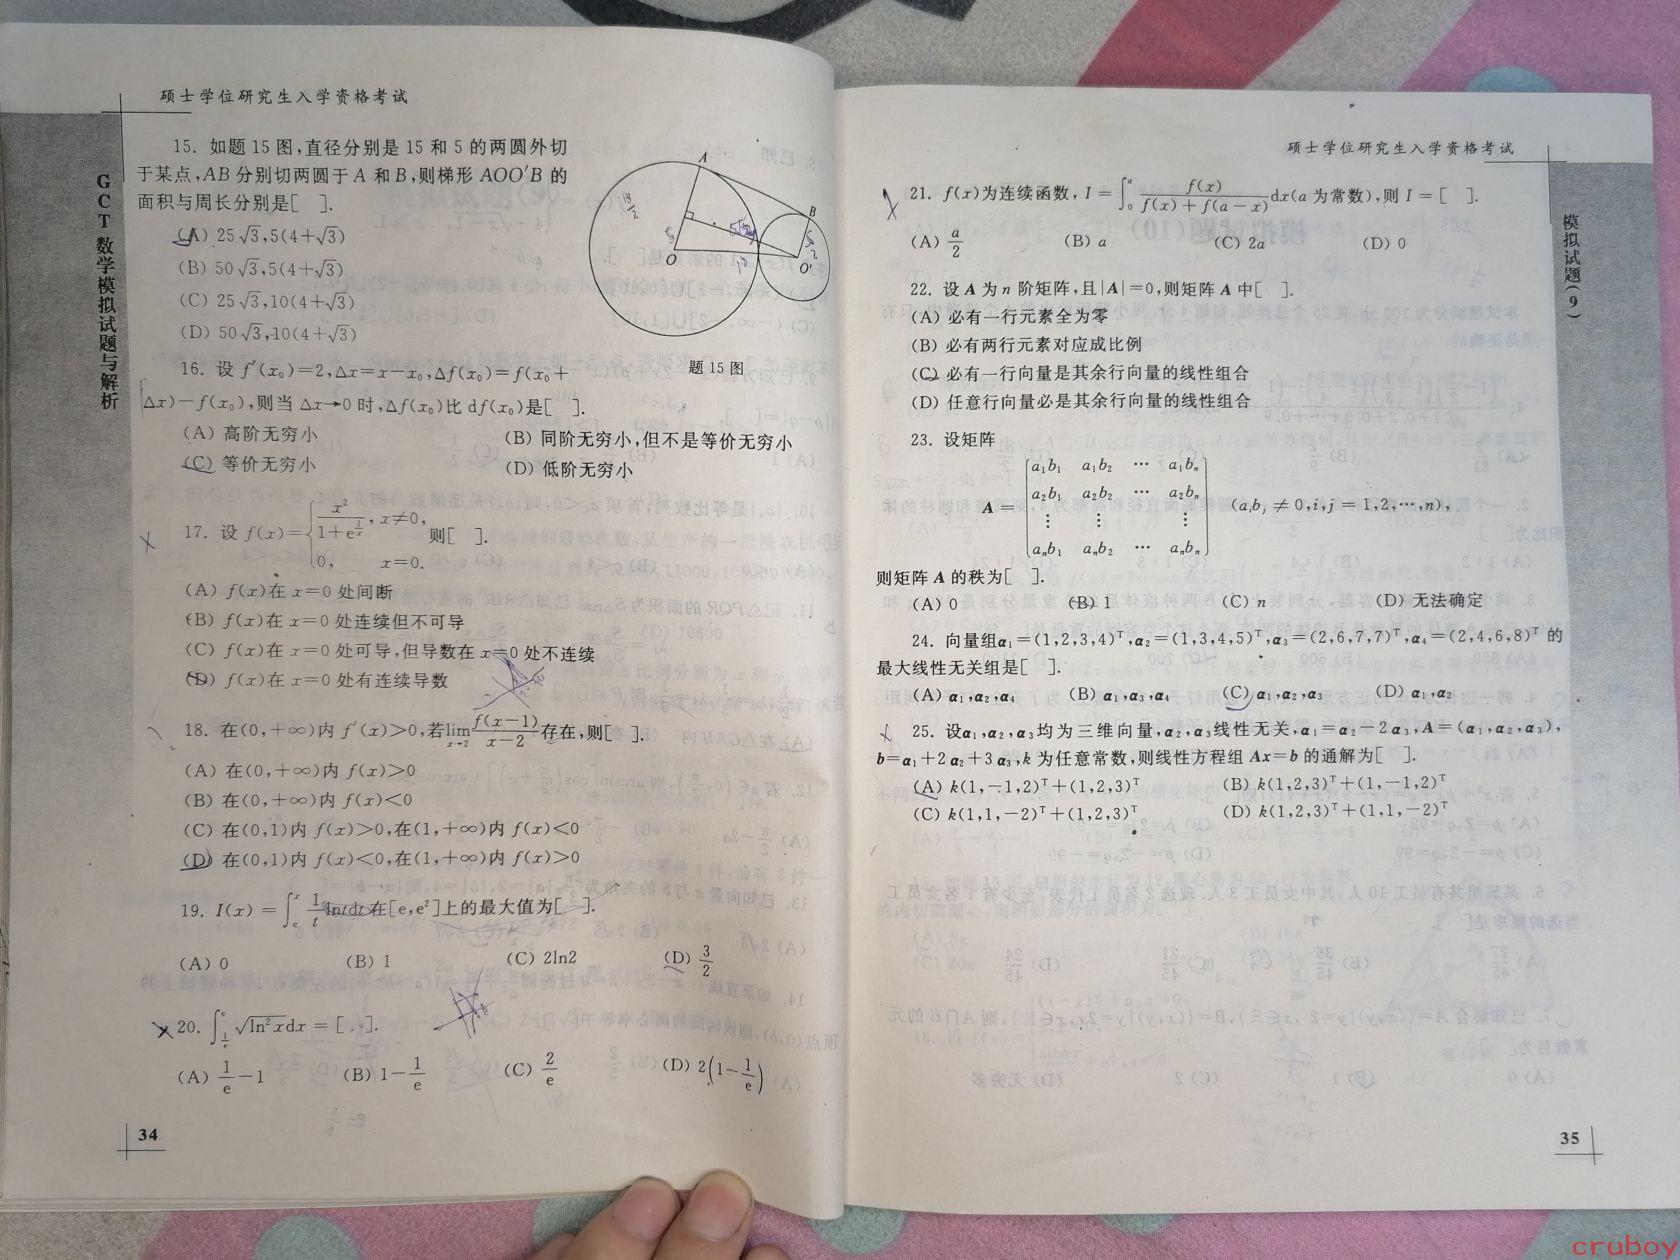 硕士学位研究生入学资格考试
GCT数学模拟试题与解析
15. 如题15图,直径分别是15和5的两圆外切
于某点,AB分别切两圆于A和B,则梯形AOO′B的
面积与周长分别是[ ].
(A) 25√3,5(4+√3)
(B) 50√3,5(4+√3)
(C) 25√3,10(4+√3)
(D) 50√3,10(4+√3)
A
B
O
O′
题15图
16. 设f′(x₀)=2,Δx=x−x₀,Δf(x₀)=f(x₀+
Δx)−f(x₀),则当Δx→0时,Δf(x₀)比df(x₀)是[ ].
(A) 高阶无穷小 (B) 同阶无穷小,但不是等价无穷小
(C) 等价无穷小 (D) 低阶无穷小
17. 设f(x)={x²/(1+e^(1/x)), x≠0, 则[ ].
0, x=0.
(A) f(x)在x=0处间断
(B) f(x)在x=0处连续但不可导
(C) f(x)在x=0处可导,但导数在x=0处不连续
(D) f(x)在x=0处有连续导数
18. 在(0,+∞)内f′(x)>0,若lim_{x→2} f(x−1)/(x−2)存在,则[ ].
(A) 在(0,+∞)内f(x)>0
(B) 在(0,+∞)内f(x)<0
(C) 在(0,1)内f(x)>0,在(1,+∞)内f(x)<0
(D) 在(0,1)内f(x)<0,在(1,+∞)内f(x)>0
19. I(x)=∫_e^x (1/t)lntdt在[e,e²]上的最大值为[ ].
(A) 0 (B) 1 (C) 2ln2 (D) 3/2
20. ∫_{1/e}^e √(ln²x)dx=[ ].
(A) 1/e−1 (B) 1−1/e (C) 2/e (D) 2(1−1/e)
34
硕士学位研究生入学资格考试
模拟试题(9)
21. f(x)为连续函数, I=∫_0^a f(x)/(f(x)+f(a−x))dx(a为常数),则I=[ ].
(A) a/2 (B) a (C) 2a (D) 0
22. 设A为n阶矩阵,且|A|=0,则矩阵A中[ ].
(A) 必有一行元素全为零
(B) 必有两行元素对应成比例
(C) 必有一行向量是其余行向量的线性组合
(D) 任意行向量必是其余行向量的线性组合
23. 设矩阵
a₁b₁ a₁b₂ ⋯ a₁bₙ
a₂b₁ a₂b₂ ⋯ a₂bₙ
A= ⋮ ⋮ ⋮ (aᵢbⱼ≠0,i,j=1,2,⋯,n),
aₙb₁ aₙb₂ ⋯ aₙbₙ
则矩阵A的秩为[ ].
(A) 0 (B) 1 (C) n (D) 无法确定
24. 向量组α₁=(1,2,3,4)ᵀ,α₂=(1,3,4,5)ᵀ,α₃=(2,6,7,7)ᵀ,α₄=(2,4,6,8)ᵀ的
最大线性无关组是[ ].
(A) α₁,α₂,α₄ (B) α₁,α₃,α₄ (C) α₁,α₂,α₃ (D) α₁,α₂
25. 设α₁,α₂,α₃均为三维向量,α₂,α₃线性无关,α₁=α₂−2α₃,A=(α₁,α₂,α₃),
b=α₁+2α₂+3α₃,k为任意常数,则线性方程组Ax=b的通解为[ ].
(A) k(1,−1,2)ᵀ+(1,2,3)ᵀ (B) k(1,2,3)ᵀ+(1,−1,2)ᵀ
(C) k(1,1,−2)ᵀ+(1,2,3)ᵀ (D) k(1,2,3)ᵀ+(1,1,−2)ᵀ
35
cruboy